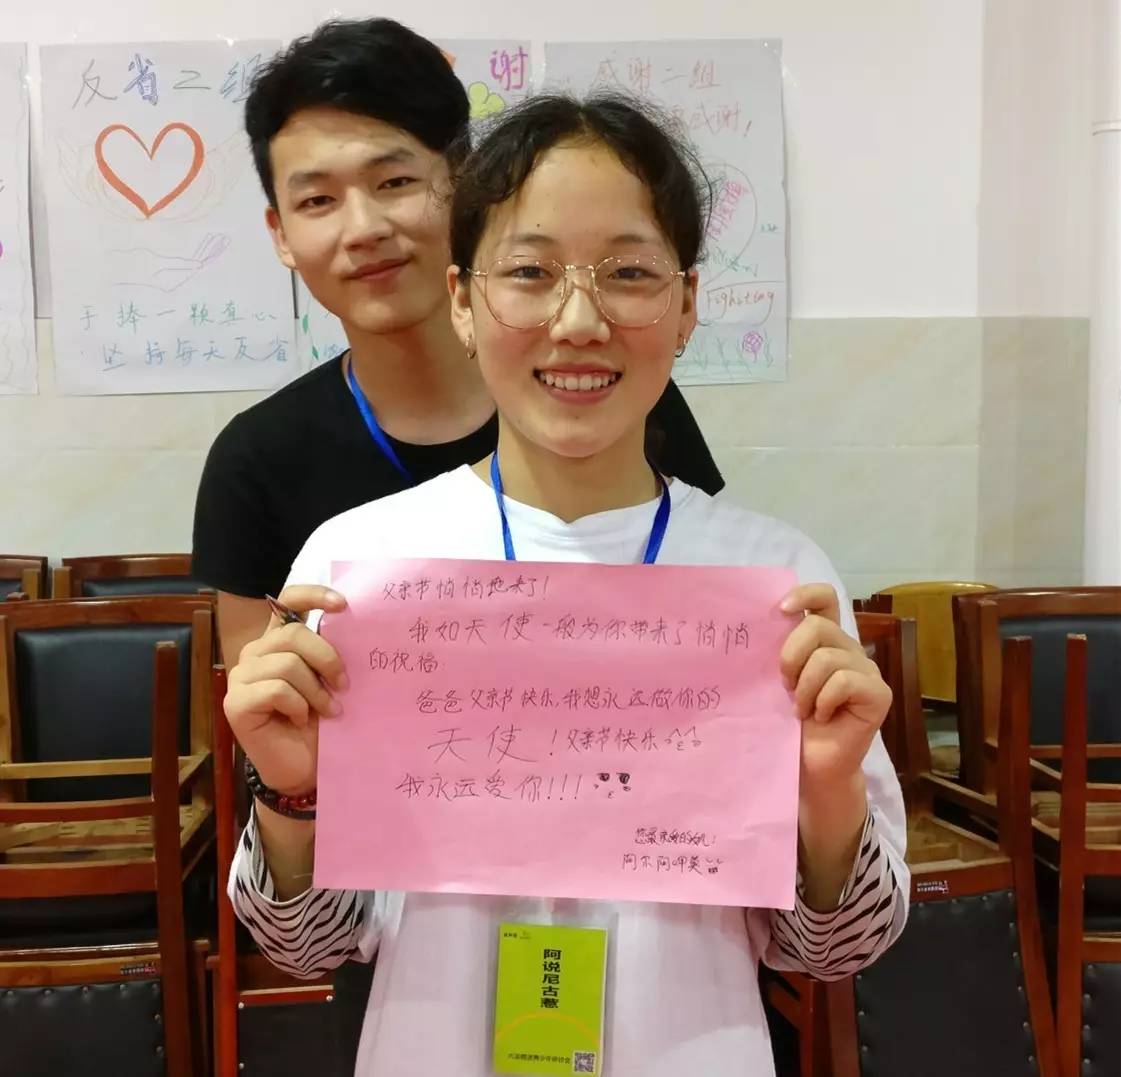 反省二组
手捧一颗真心
坚持每天反省
谢
感谢二组
感谢!
Fighting
父亲节悄悄地来了!
我如天使一般为你带来了悄悄
的祝福.
爸爸父亲节快乐,我想永远做你的
天使!父亲节快乐
我永远爱你!!!
您最亲爱的女儿!
阿尔阿呷英
阿说尼古惹